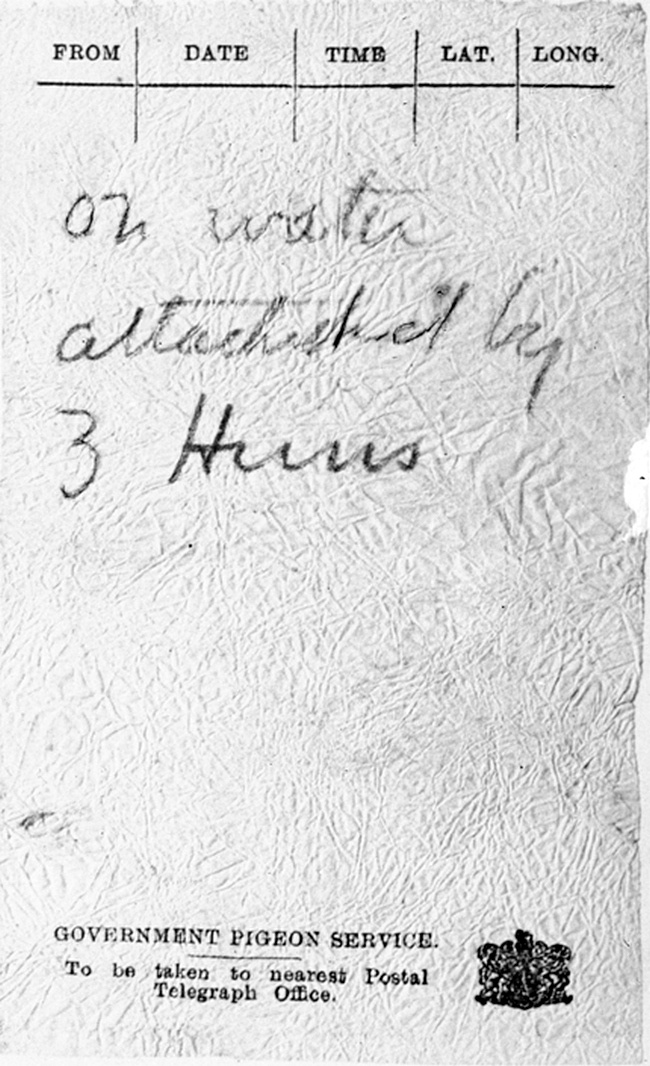 FROM DATE TIME LAT. LONG.
on water
attacked by
3 Huns
GOVERNMENT PIGEON SERVICE.
To be taken to nearest Postal
Telegraph Office.